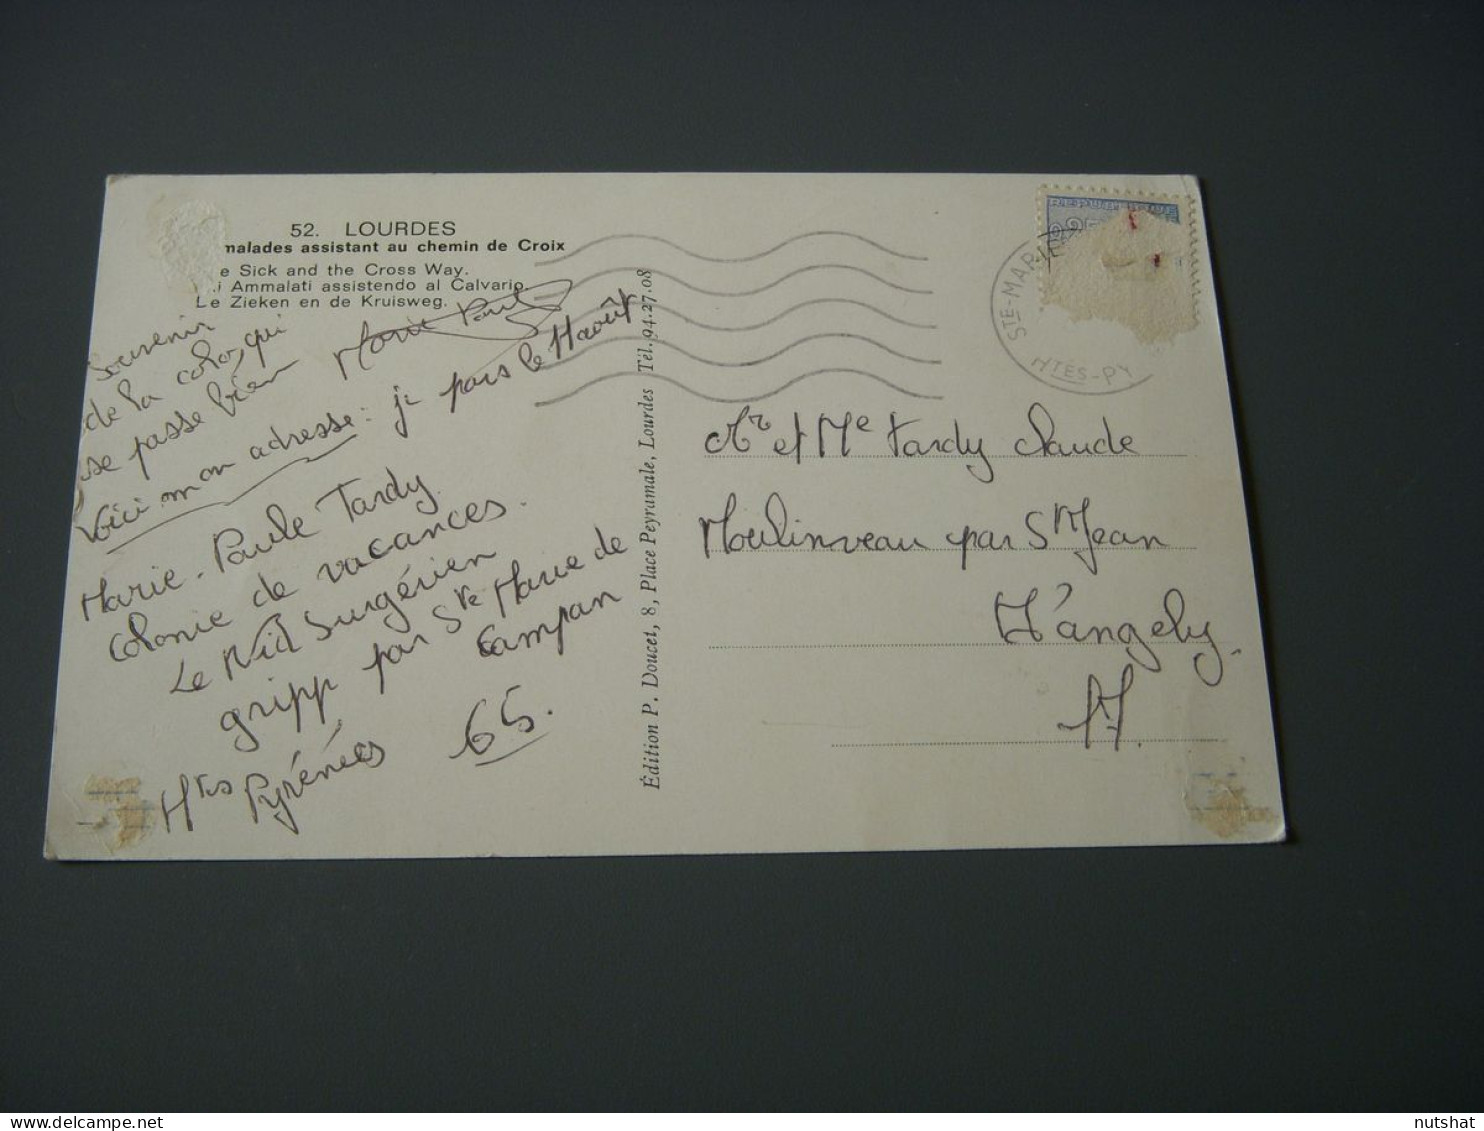 52. LOURDES
malades assistant au chemin de Croix
e Sick and the Cross Way.
i Ammalati assistendo al Calvario.
Le Zieken en de Kruisweg.
Souvenir
de la colo, qui
se passe bien
Marie Paule
Voici mon adresse : je pars le 11 août
Marie-Paule Tardy
Colonie de vacances.
Le Nid Surgérien
gripp par Ste Marie de
Campan
Htes Pyrénées 65.
Édition P. Doucet, 8, Place Peyramale, Lourdes Tél. 94.27.08
STE-MARIE
HTES-PY
Mr et Me Tardy Claude
Moulinveau par St Jean
d'Angely.
17.
nutshat